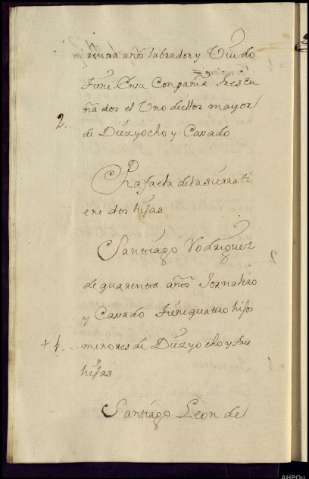 años labrador y Viudo
tiene en su Compañia tres Cu
ñados el Uno de ellos mayor
2. de Diez y ocho y Casado
Rafaela de la sierra ti
ene dos hijas
Santiago Rodriguez
de quarenta años Jornalero
y Casado tiene quatro hijos
+ 1. menores de Diez y ocho y tres
hijas
Santiago Leon de
AHPCu